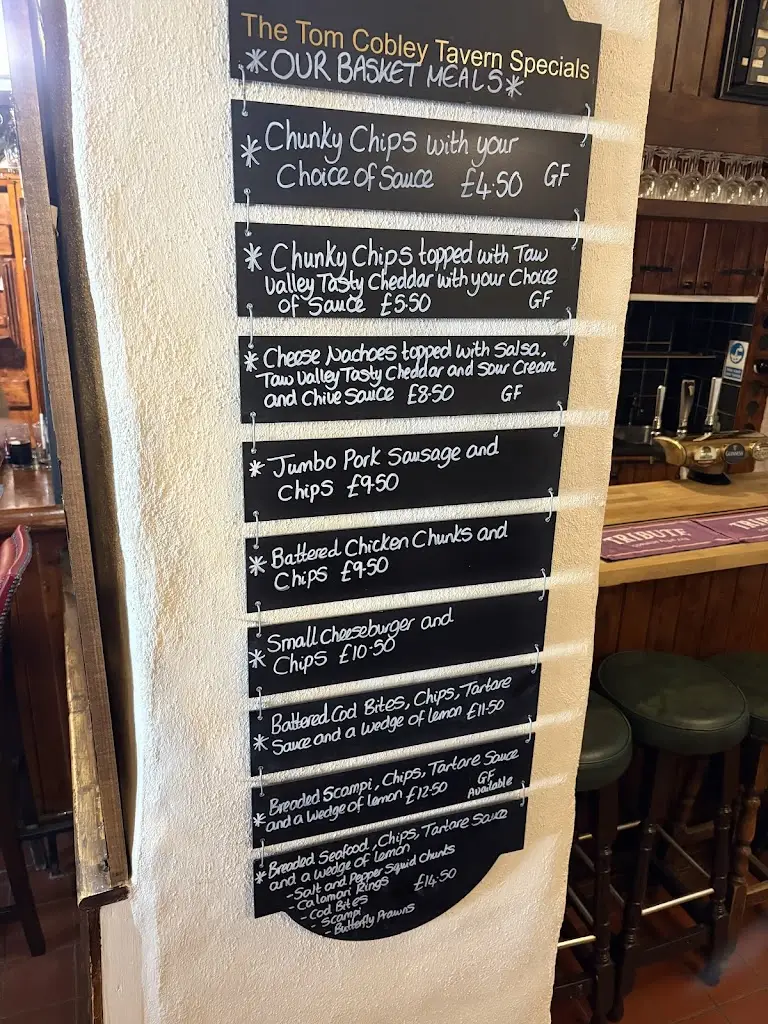 The Tom Cobley Tavern Specials
*OUR BASKET MEALS*
* Chunky Chips with your
Choice of Sauce £4.50 GF
* Chunky Chips topped with Taw
Valley Tasty Cheddar with your Choice
of Sauce £5.50 GF
* Cheese Nachoes topped with Salsa,
Taw Valley Tasty Cheddar and Sour Cream
and Chive Sauce £8.50 GF
* Jumbo Pork Sausage and
Chips £9.50
* Battered Chicken Chunks and
Chips £9.50
* Small Cheeseburger and
Chips £10.50
* Battered Cod Bites, Chips, Tartare
Sauce and a wedge of lemon £11.50
* Breaded Scampi, Chips, Tartare Sauce
and a wedge of lemon £12.50 GF Available
* Breaded Seafood, Chips, Tartare Sauce
and a wedge of lemon
- Salt and Pepper Squid Chunks
- Calamari Rings £14.50
- Cod Bites
- Scampi
- Butterfly Prawns
TRIBUTE
GUINNESS